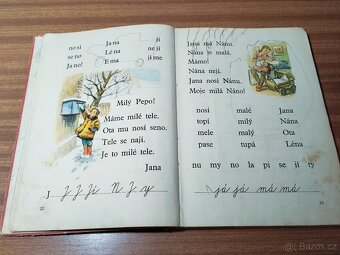 nosí Jana jí
no se Léna nejí
Ja no! Ema jíme
Milý Pepo!
Máme milé tele.
Ota mu nosí seno.
Tele se nají.
Je to milé tele.
Jana
J J J Jí N J y
22
Jana má Nánu.
Nána je malá.
Mámo!
Nána nejí.
Jana nosí Nánu.
Moje milá Náno!
nosí malé Jana
topí milý Nána
mele malý Ota
pase tupá Léna
nu my no la pí se jí ty
já já má má
23